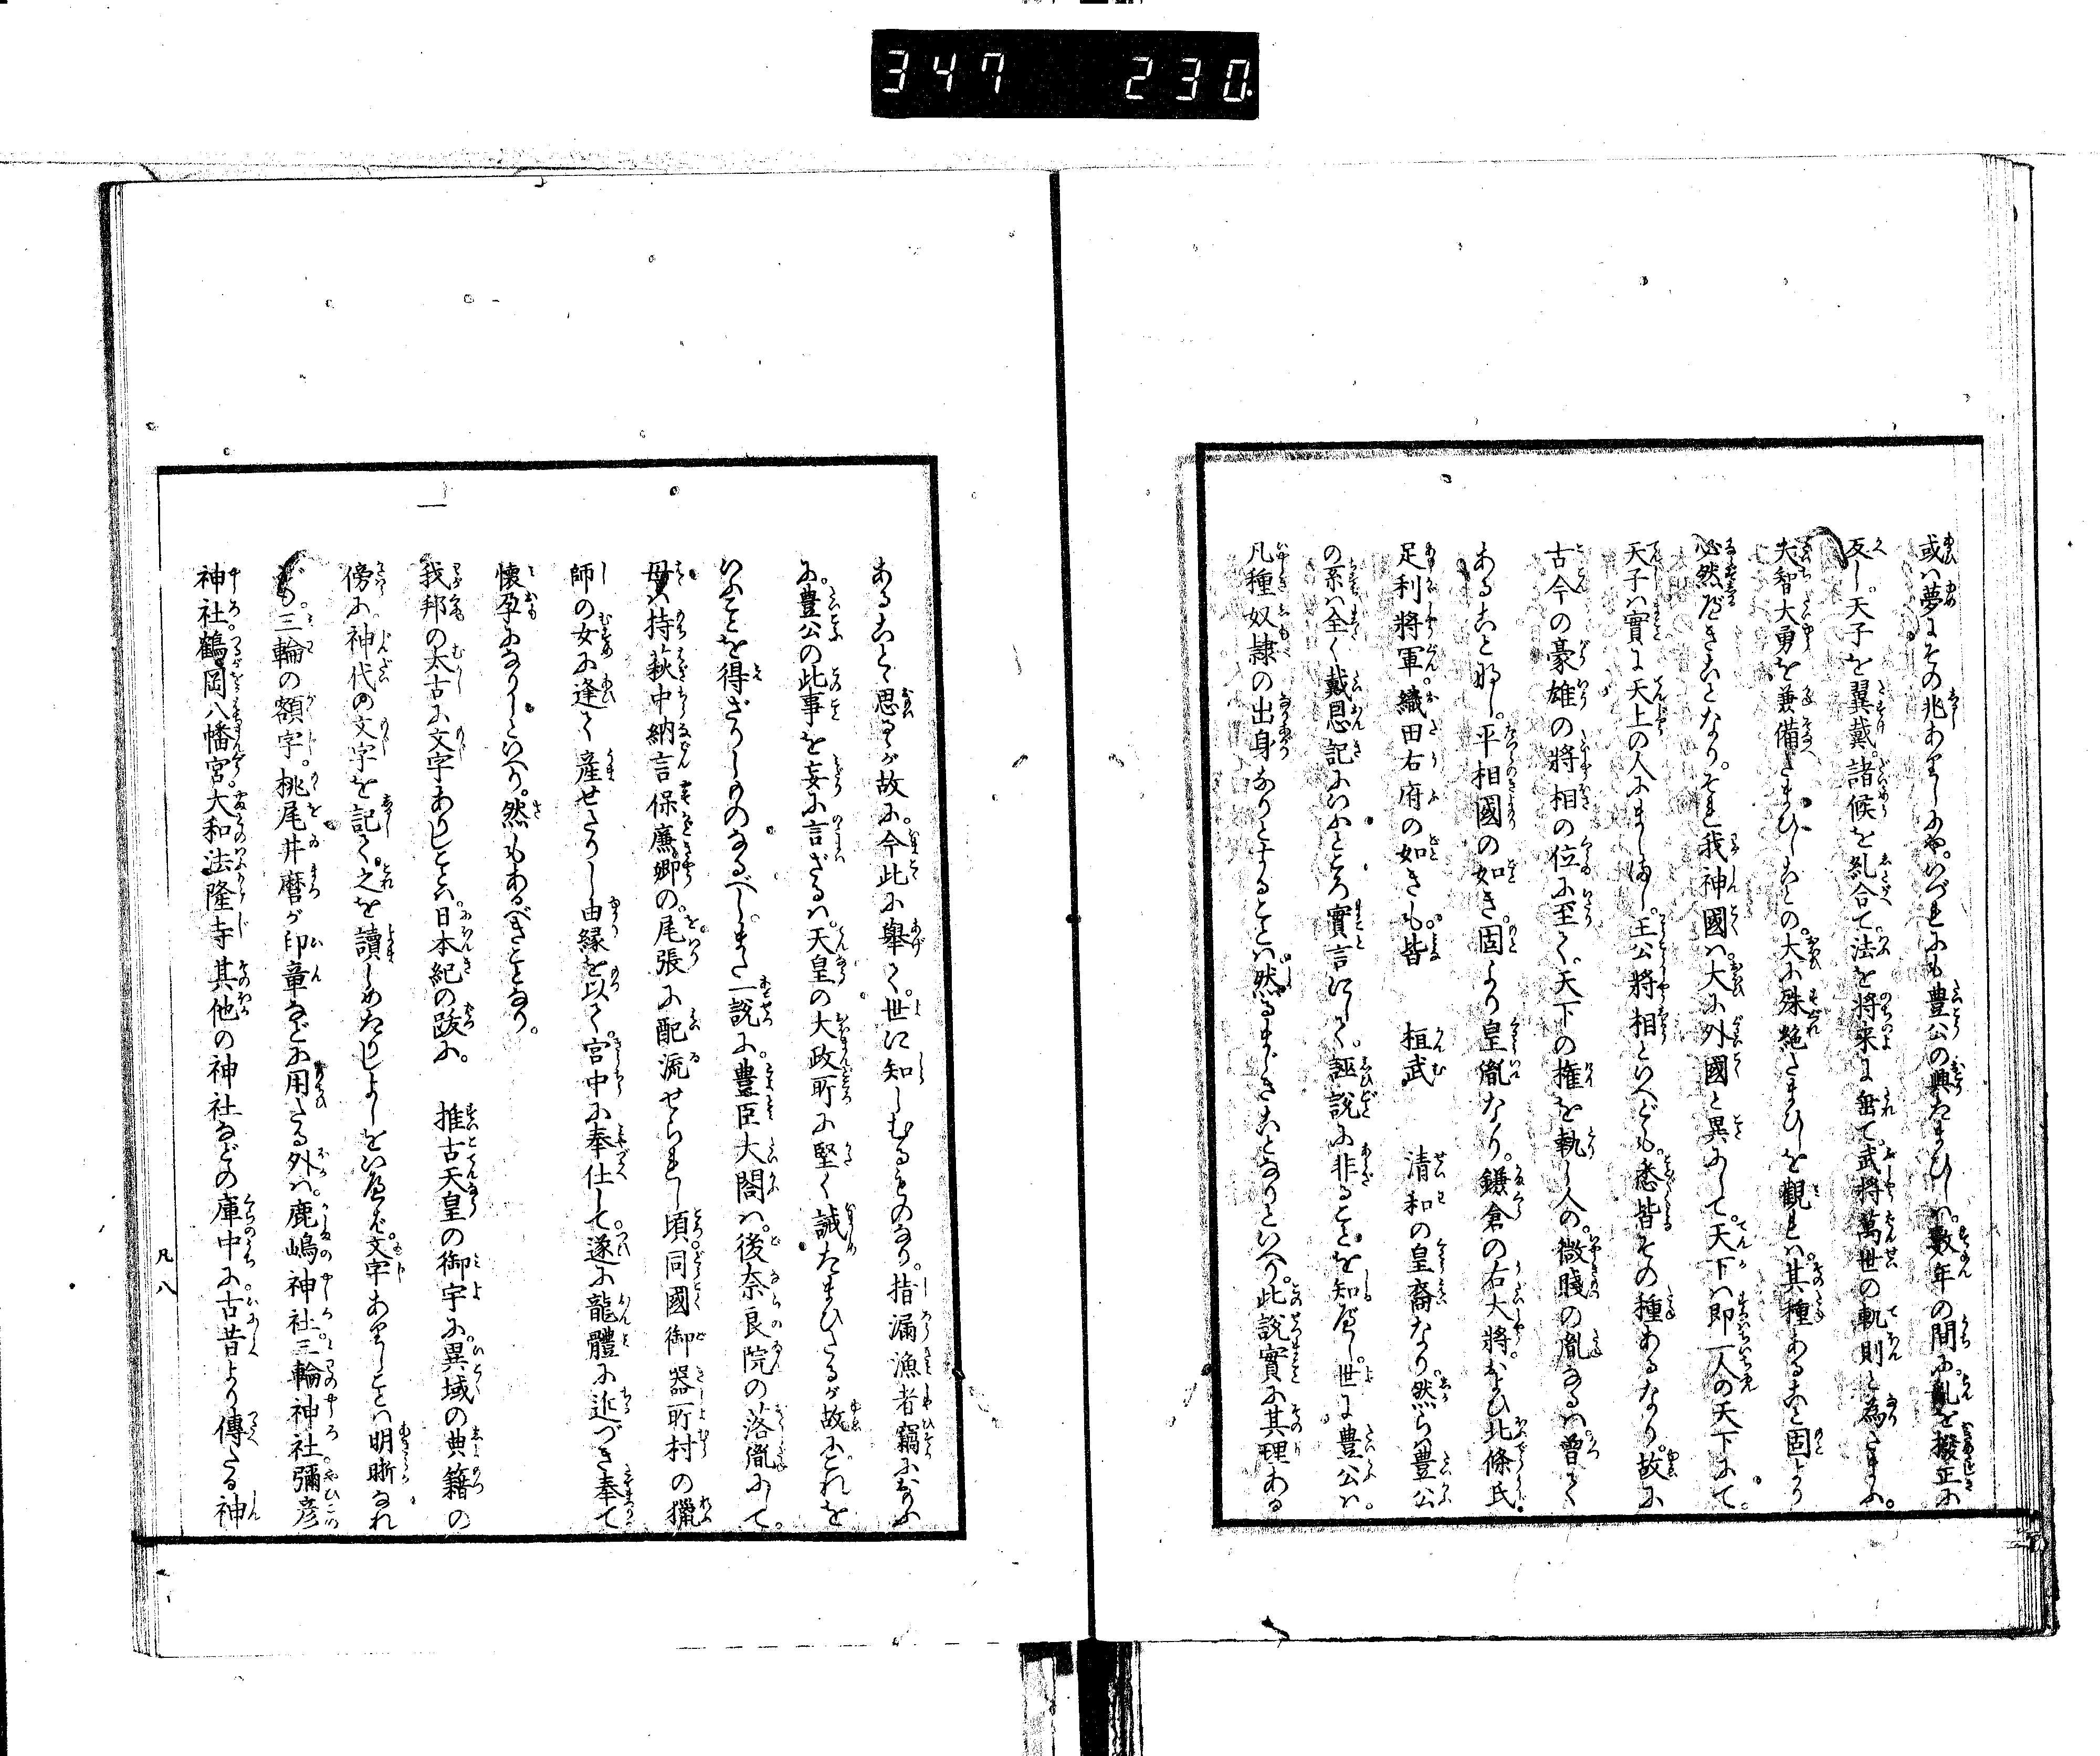 347 230
或ハ夢にその兆あらハれしにや。いづれにも豊公の興たまひしハ。數年の間に。亂を撥正に
反し。天子を翼戴。諸候を糺合て。法を将来に垂て。武将萬世の軌則と為たまふ。
大智大勇を兼備たまひしことの。大に殊絶たまひしを觀れバ。其種あること固より
必然べきことなり。それ我神國ハ。大に外國と異にして。天下ハ即一人の天下にて。
天子ハ實に天上の人にましませし。王公將相といへども。悉皆その種あるなり。故に
古今の豪雄の將相の位に至て。天下の権を執し人の。微賤の胤なるハ。曾て
あること那し。平相國の如き。固より皇胤なり。鎌倉の右大將。および北條氏。
足利將軍。織田右府の如きも。皆 桓武 清和の皇裔なり。然らバ豊公
の系ハ全く戴恩記にいふところ實言にして。誣説に非ることを知べし。世に豊公ハ。
凡種奴隷の出身なりとするごときハ。然るまじきことなりといへり。此説實に其理ある
あることゝ思るが故に。今此に擧て。世に知しむるものなり。指漏漁者竊におもふ
に。豊公の此事を妄に言ざるハ。天皇の大政所に堅く誡たまひたるが故に。これを
いふことを得ざりしものなるべし。また一説に。豊臣大閤ハ。後奈良院の落胤にして。
母ハ持萩中納言保廉卿の。尾張に配流せられし頃。同國御器所村の獵
師の女に逢て産せたりし由縁を以て。宮中に奉仕して。遂に龍體に近づき奉て
懐孕になりしといへり。然もあるべきことなり。
一 我邦の太古に文字ありしことハ。日本紀の跋に。 推古天皇の御宇に。異域の典籍の
傍に。神代の文字を記て。之を讀しめたりしよしをいへれバ。文字ありしことハ明晰なれ
ども。三輪の額字。桃尾井麿が印章などに用たる外ハ。鹿嶋神社。三輪神社。彌彦
神社。鶴岡八幡宮。大和法隆寺其他の神社などの庫中に。古昔より傳たる神
凡 八